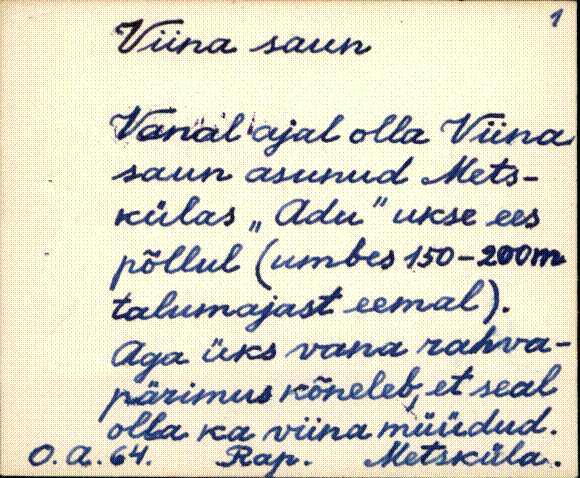 1
Viina saun
Vanal ajal olla Viina
saun asunud Mets-
külas „Adu" ukse ees
põllul (umbes 150-200m
talumajast eemal).
Aga üks vana rahva-
pärimus kõneleb, et seal
olla ka viina müüdud.
O.A.64. Rap. Metsküla.